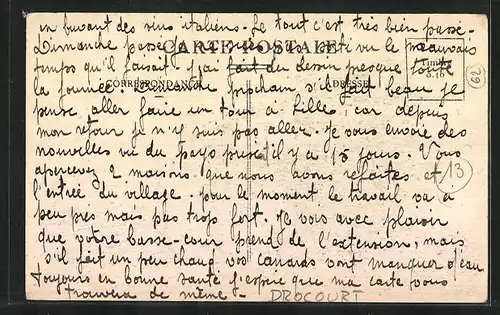 en buvant des vins italiens. Le tout s'est très bien passé.
Dimanche passé je ne suis sorti vu le mauvais
CARTE POSTALE
temps qu'il faisait. J'ai fait du dessin presque toute
CORRESPONDANCE ADRESSE
la journée. Dimanche prochain s'il fait beau je
62
pense aller faire un tour à Lille, car depuis
mon retour je n'y suis pas aller. Je vous envoie des
nouvelles vu du pays il y a 15 jours. Vous
apercevez 2 maisons que nous avons refaites et
13
l'entrée du village. Pour le moment le travail va à
peu près mais pas trop fort. Je vois avec plaisir
que votre basse-cour prend de l'extension, mais
s'il fait un peu chaud vos canards vont manquer d'eau.
Toujours en bonne santé j'espère que ma carte vous
trouvera de même.-
DROCOURT